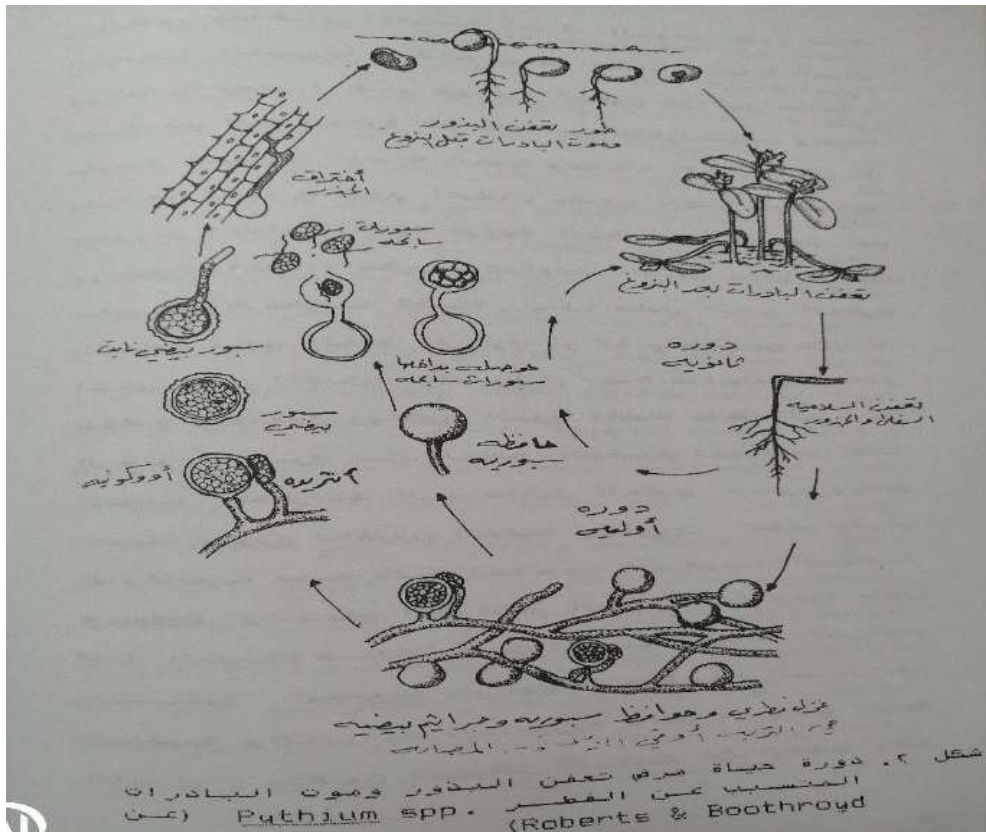 طور تعفن البذور
وموت البادرات قبل البزوغ
أختراق
الجذر
سبورات
سابحه
تعفن البادرات بعد البزوغ
سبور بيضي نابت
حوصله بداخلها
سبورات سابحه
دوره
ثانويه
تعفن السلاميه
السفلى والجذور
سبور
بيضي
حافظه
سبوريه
أووكونيه
أنثريده
دوره
أوليه
غزل فطري وحوافظ سبوريه وجراثيم بيضيه
في التربه أو في
شكل ٢. دورة حياة مرض تعفن البذور وموت البادرات
المتسبب عن الفطر Pythium spp. (عن
Roberts & Boothroyd)